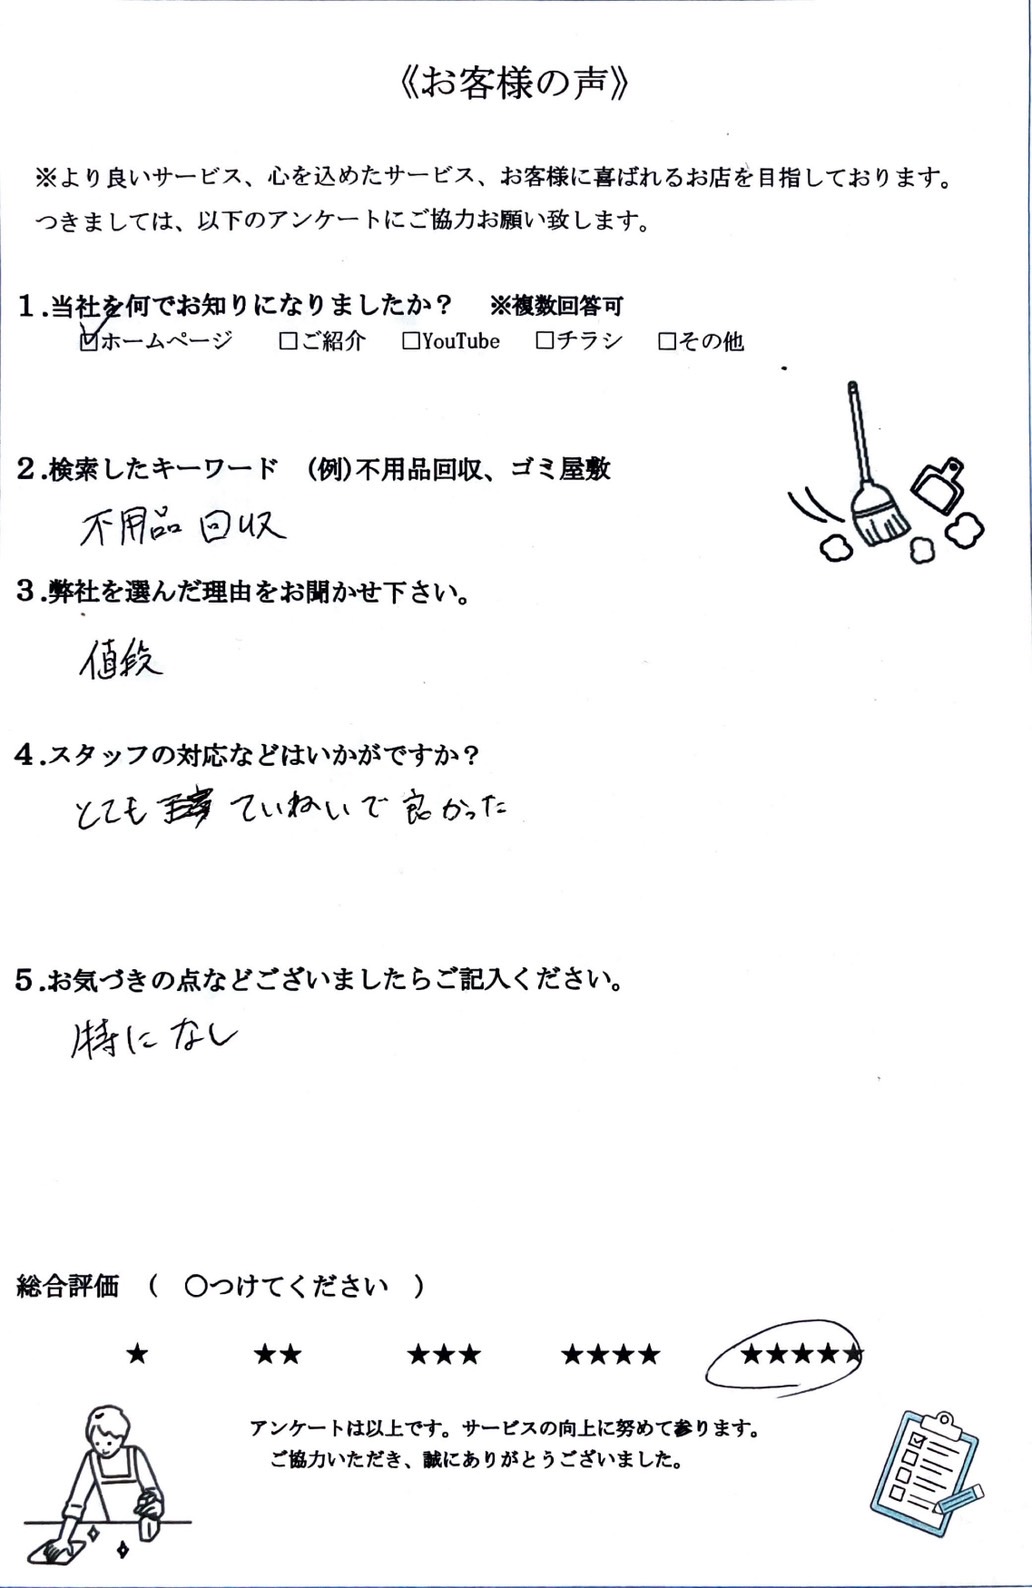 《お客様の声》
※より良いサービス、心を込めたサービス、お客様に喜ばれるお店を目指しております。
つきましては、以下のアンケートにご協力お願い致します。
1.当社を何でお知りになりましたか？　※複数回答可
☑ホームページ　□ご紹介　□YouTube　□チラシ　□その他
2.検索したキーワード　(例)不用品回収、ゴミ屋敷
不用品回収
3.弊社を選んだ理由をお聞かせ下さい。
値段
4.スタッフの対応などはいかがですか？
とても ていねいで良かった
5.お気づきの点などございましたらご記入ください。
特になし
総合評価　(　〇つけてください　)
★　★★　★★★　★★★★　★★★★★
アンケートは以上です。サービスの向上に努めて参ります。
ご協力いただき、誠にありがとうございました。